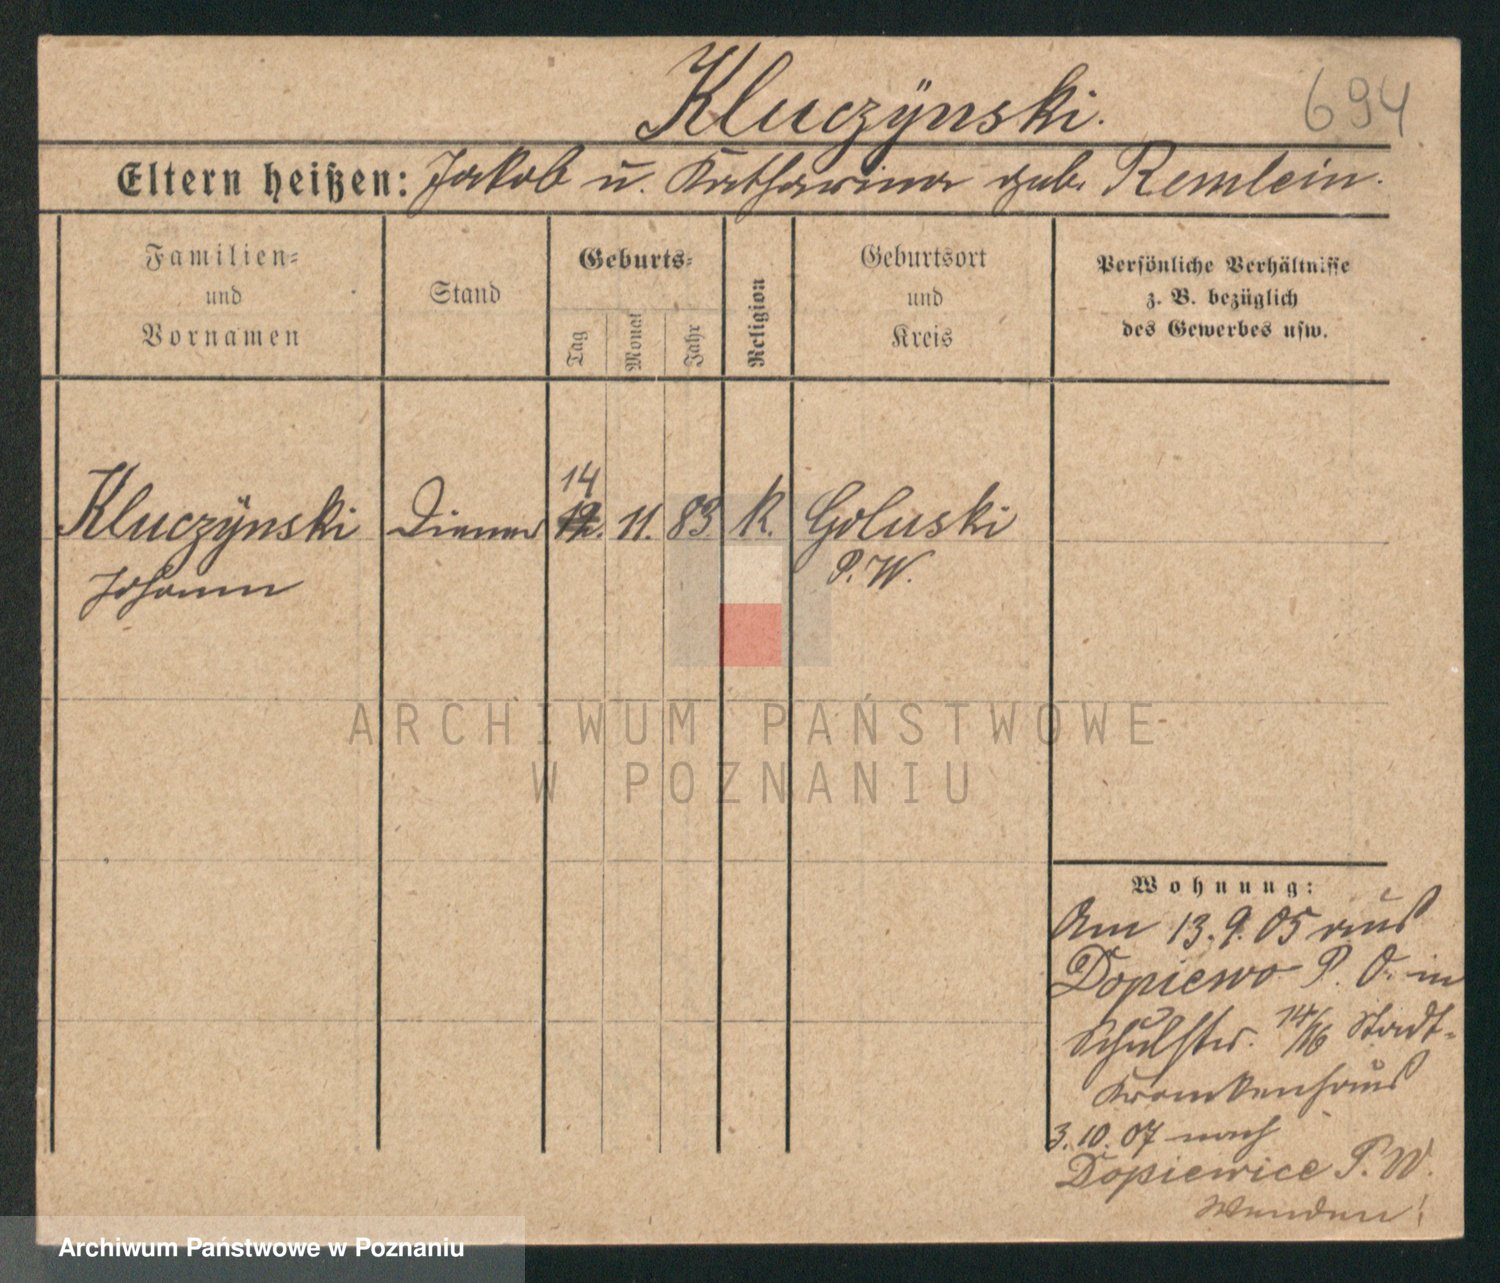 694
Kluczÿnski.
Eltern heißen: Jakob u. Katharina geb. Remlein.
Familien-
und
Vornamen
Stand
Geburts-
Tag
Monat
Jahr
Religion
Geburtsort
und
Kreis
Persönliche Verhältnisse
z. B. bezüglich
des Gewerbes usw.
14
Kluczÿnski Diener 12. 11. 83. K. Goluski
Johann P. W.
ARCHIWUM PAŃSTWOWE
W POZNANIU
Wohnung:
Am 13. 9. 05 aus
Dopiewo P. O. in
Schulstr. 14/16 Stadt-
Krankenhaus
3. 10. 07 nach
Dopiewice P. W.
Archiwum Państwowe w Poznaniu